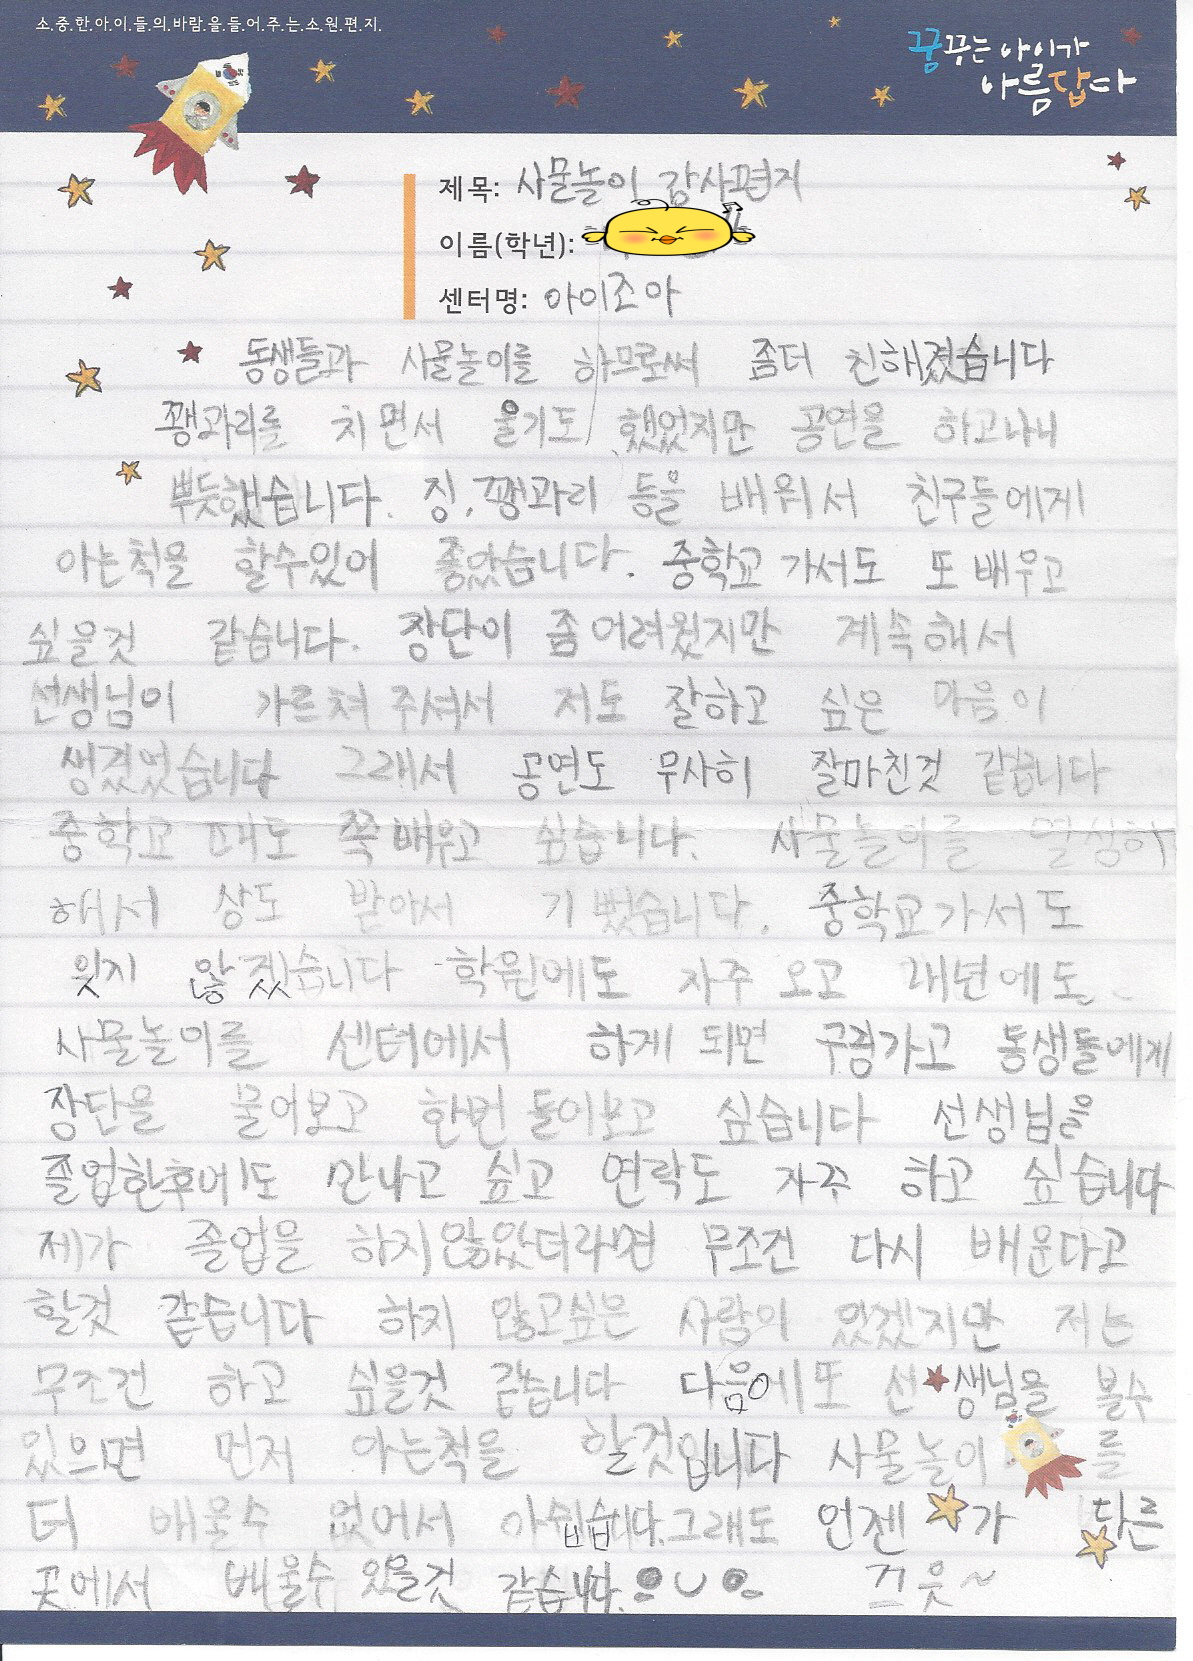 소.중.한.아.이.들.의.바.람.을.들.어.주.는.소.원.편.지.
꿈꾸는 아이가
아름답다
제목: 사물놀이 감사편지
이름(학년):
센터명: 아이조아
동생들과 사물놀이를 하므로써 좀더 친해졌습니다
꽹과리를 치면서 울기도 했었지만 공연을 하고나니
뿌듯했습니다. 징, 꽹과리 등을 배워서 친구들에게
아는척을 할수있어 좋았습니다. 중학교 가서도 또 배우고
싶을것 같습니다. 장단이 좀 어려웠지만 계속해서
선생님이 가르쳐 주셔서 저도 잘하고 싶은 마음이
생겼었습니다 그래서 공연도 무사히 잘마친것 같습니다
중학교 때도 쭉 배우고 싶습니다. 사물놀이를 열심히
해서 상도 받아서 기뻤습니다. 중학교가서도
잊지 않겠습니다 학원에도 자주 오고 내년에도
사물놀이를 센터에서 하게 되면 구경가고 동생들에게
장단을 물어보고 한번 돌아보고 싶습니다 선생님을
졸업한후에도 만나고 싶고 연락도 자주 하고 싶습니다
제가 졸업을 하지않았더라면 무조건 다시 배운다고
할것 같습니다 하지 않고싶은 사람이 있겠지만 저는
무조건 하고 싶을것 같습니다 다음에또 선생님을 볼수
있으면 먼저 아는척을 할것입니다 사물놀이를
더 배울수 없어서 아쉽습니다. 그래도 언젠가 다른
곳에서 배울수 있을것 같습니다. 끄읏~